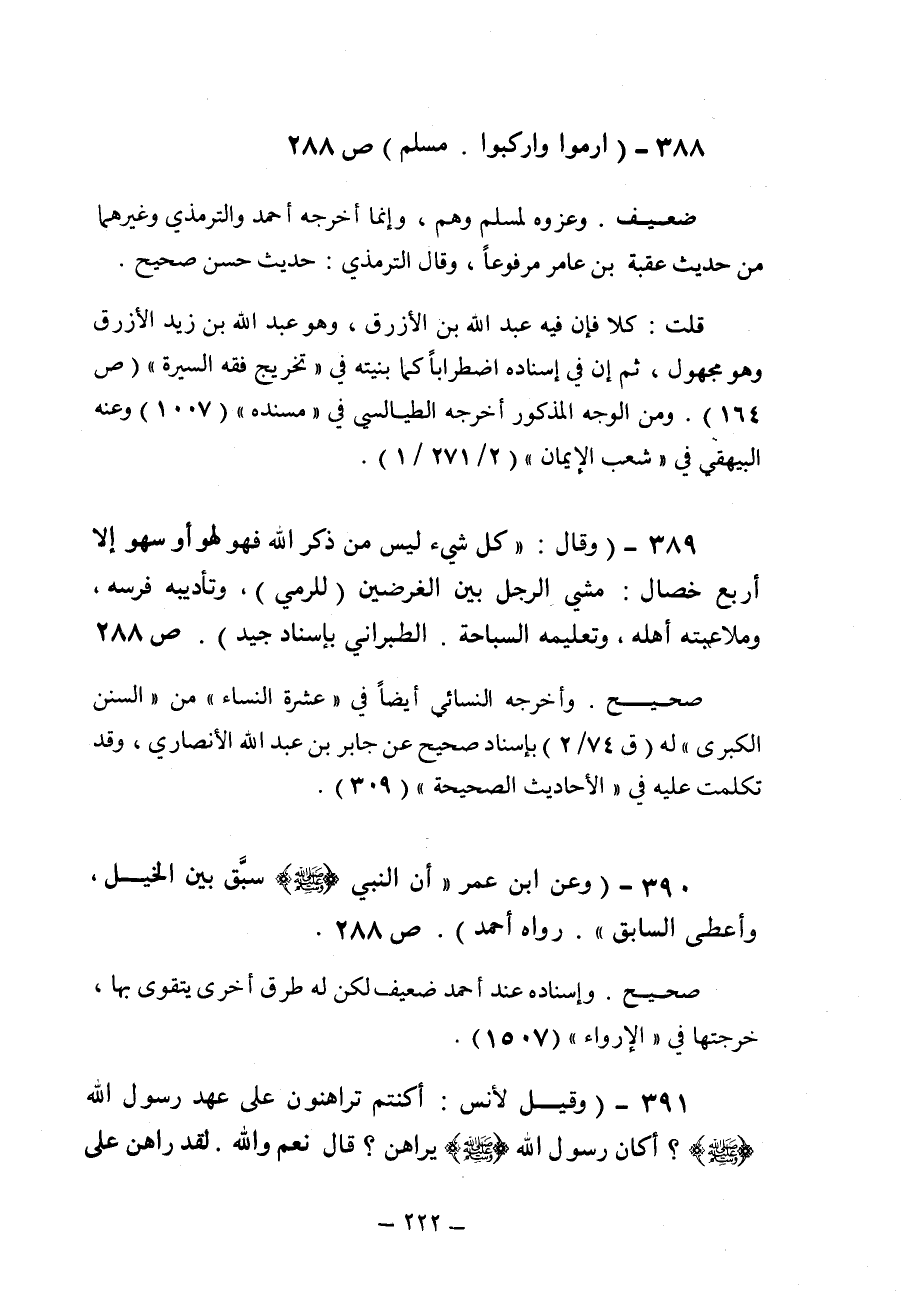 ٣٨٨ - ( ارموا واركبوا . مسلم ) ص ٢٨٨
ضعيف . وعزوه لمسلم وهم ، وإنما أخرجه أحمد والترمذي وغيرهما
من حديث عقبة بن عامر مرفوعاً ، وقال الترمذي : حديث حسن صحيح .
قلت : كلا فإن فيه عبد الله بن الأزرق ، وهو عبد الله بن زيد الأزرق
وهو مجهول ، ثم إن في إسناده اضطراباً كما بنيته في « تخريج فقه السيرة » ( ص
١٦٤ ) . ومن الوجه المذكور أخرجه الطيالسي في « مسنده » ( ١٠٠٧ ) وعنه
البيهقي في « شعب الإيمان » ( ٢ / ٢٧١ / ١ ) .
٣٨٩ - ( وقال : « كل شيء ليس من ذكر الله فهو لهو أو سهو إلا
أربع خصال : مشي الرجل بين الغرضين ( للرمي ) ، وتأديبه فرسه ،
وملاعبته أهله ، وتعليمه السباحة . الطبراني بإسناد جيد ) . ص ٢٨٨
صحيح . وأخرجه النسائي أيضاً في « عشرة النساء » من « السنن
الكبرى » له ( ق ٧٤ / ٢ ) بإسناد صحيح عن جابر بن عبد الله الأنصاري ، وقد
تكلمت عليه في « الأحاديث الصحيحة » ( ٣٠٩ ) .
٣٩٠ - ( وعن ابن عمر « أن النبي ﴿ﷺ﴾ سبَّق بين الخيل ،
وأعطى السابق » . رواه أحمد ) . ص ٢٨٨ .
صحيح . وإسناده عند أحمد ضعيف لكن له طرق أخرى يتقوى بها ،
خرجتها في « الإرواء » (١٥٠٧) .
٣٩١ - ( وقيل لأنس : أكنتم تراهنون على عهد رسول الله
﴿ﷺ﴾ ؟ أكان رسول الله ﴿ﷺ﴾ يراهن ؟ قال نعم والله . لقد راهن على
- ٢٢٢ -